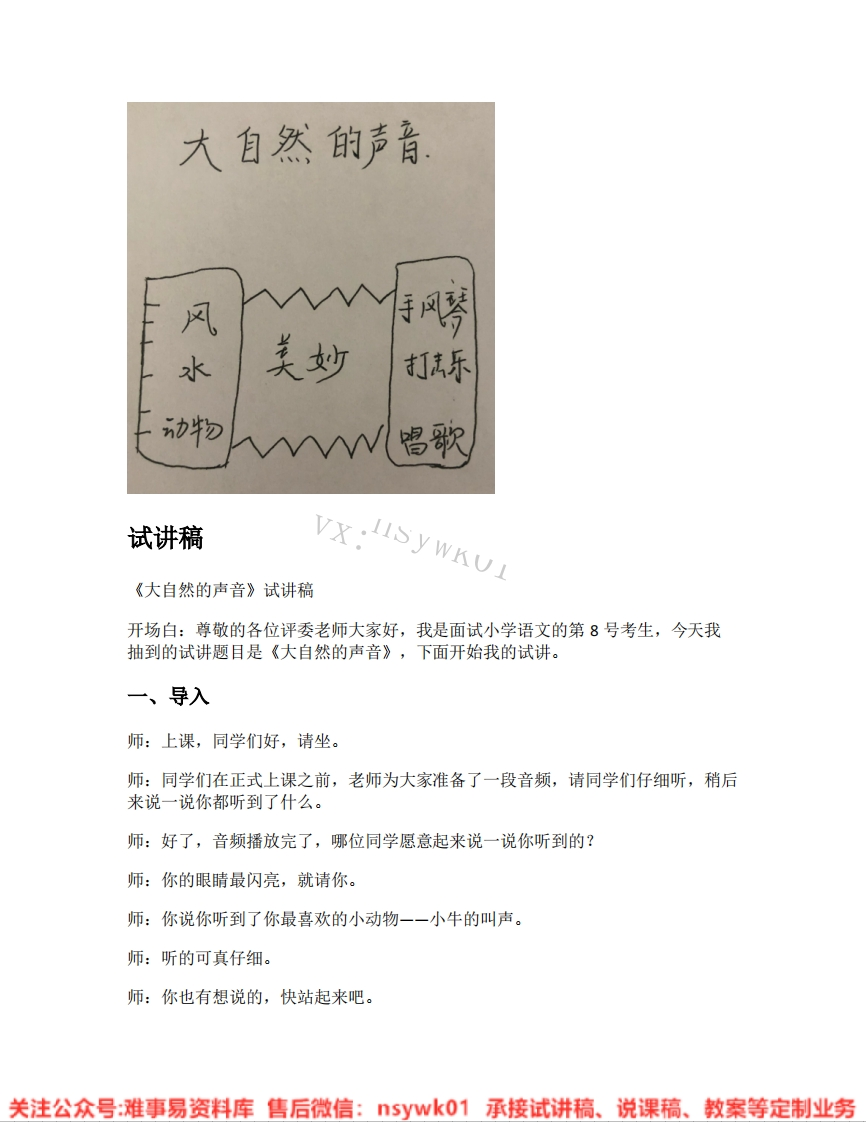 大自然的声音.
风
水
动物
美妙
手风琴
打击乐
唱歌
VX:nsywk01
试讲稿
《大自然的声音》试讲稿
开场白：尊敬的各位评委老师大家好，我是面试小学语文的第 8 号考生，今天我
抽到的试讲题目是《大自然的声音》，下面开始我的试讲。
一、导入
师：上课，同学们好，请坐。
师：同学们在正式上课之前，老师为大家准备了一段音频，请同学们仔细听，稍后
来说一说你都听到了什么。
师：好了，音频播放完了，哪位同学愿意起来说一说你听到的？
师：你的眼睛最闪亮，就请你。
师：你说你听到了你最喜欢的小动物——小牛的叫声。
师：听的可真仔细。
师：你也有想说的，快站起来吧。
关注公众号:难事易资料库 售后微信：nsywk01 承接试讲稿、说课稿、教案等定制业务